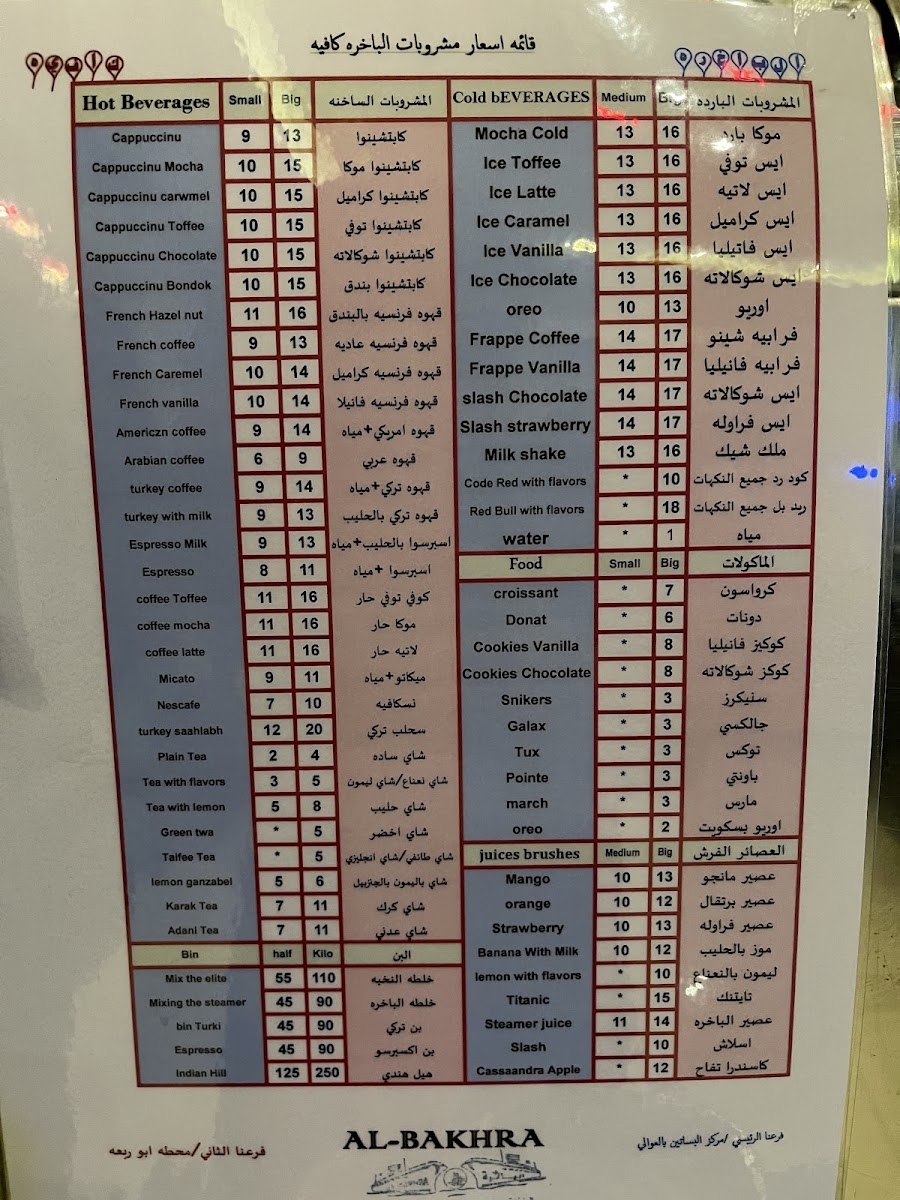 قائمه اسعار مشروبات الباخره كافيه
كافيه
الباخره
Hot Beverages Small Big المشروبات الساخنه
Cappuccinu 9 13 كابتشينوا
Cappuccinu Mocha 10 15 كابتشينوا موكا
Cappuccinu carwmel 10 15 كابتشينوا كراميل
Cappuccinu Toffee 10 15 كابتشينوا توفي
Cappuccinu Chocolate 10 15 كابتشينوا شوكالاته
Cappuccinu Bondok 10 15 كابتشينوا بندق
French Hazel nut 11 16 قهوه فرنسيه بالبندق
French coffee 9 13 قهوه فرنسيه عاديه
French Caremel 10 14 قهوه فرنسيه كراميل
French vanilla 10 14 قهوه فرنسيه فانيلا
Americzn coffee 9 14 قهوه امريكي+مياه
Arabian coffee 6 9 قهوه عربي
turkey coffee 9 14 قهوه تركي+مياه
turkey with milk 9 13 قهوه تركي بالحليب
Espresso Milk 9 13 اسبرسوا بالحليب+مياه
Espresso 8 11 اسبرسوا +مياه
coffee Toffee 11 16 كوفي توفي حار
coffee mocha 11 16 موكا حار
coffee latte 11 16 لاتيه حار
Micato 9 11 ميكاتو+مياه
Nescafe 7 10 نسكافيه
turkey saahlabh 12 20 سحلب تركي
Plain Tea 2 4 شاي ساده
Tea with flavors 3 5 شاي نعناع/شاي ليمون
Tea with lemon 5 8 شاي حليب
Green twa * 5 شاي اخضر
Taifee Tea * 5 شاي طائفي/شاي انجليزي
lemon ganzabel 5 6 شاي باليمون بالجنزبيل
Karak Tea 7 11 شاي كرك
Adani Tea 7 11 شاي عدني
Bin half Kilo البن
Mix the elite 55 110 خلطه النخبه
Mixing the steamer 45 90 خلطه الباخره
bin Turki 45 90 بن تركي
Espresso 45 90 بن اكسبرسو
Indian Hill 125 250 هيل هندي
Cold bEVERAGES Medium Big المشروبات البارده
Mocha Cold 13 16 موكا بارد
Ice Toffee 13 16 ايس توفي
Ice Latte 13 16 ايس لاتيه
Ice Caramel 13 16 ايس كراميل
Ice Vanilla 13 16 ايس فاتيليا
Ice Chocolate 13 16 ايس شوكالاته
oreo 10 13 اوريو
Frappe Coffee 14 17 فرابيه شينو
Frappe Vanilla 14 17 فرابيه فانيليا
slash Chocolate 14 17 ايس شوكالاته
Slash strawberry 14 17 ايس فراوله
Milk shake 13 16 ملك شيك
Code Red with flavors * 10 كود رد جميع النكهات
Red Bull with flavors * 18 ريد بل جميع النكهات
water * 1 مياه
Food Small Big الماكولات
croissant * 7 كرواسون
Donat * 6 دونات
Cookies Vanilla * 8 كوكيز فانيليا
Cookies Chocolate * 8 كوكز شوكالاته
Snikers * 3 سنيكرز
Galax * 3 جالكسي
Tux * 3 توكس
Pointe * 3 باونتي
march * 3 مارس
oreo * 2 اوريو بسكويت
juices brushes Medium Big العصائر الفرش
Mango 10 13 عصير مانجو
orange 10 12 عصير برتقال
Strawberry 10 13 عصير فراوله
Banana With Milk 10 12 موز بالحليب
lemon with flavors * 10 ليمون بالنعناع
Titanic * 15 تايتنك
Steamer juice 11 14 عصير الباخره
Slash * 10 اسلاش
Cassaandra Apple * 12 كاسندرا تفاح
فرعنا الرئيسي /مركز البساتين بالعوالي
AL-BAKHRA
فرعنا الثاني/محطه ابو ربعه